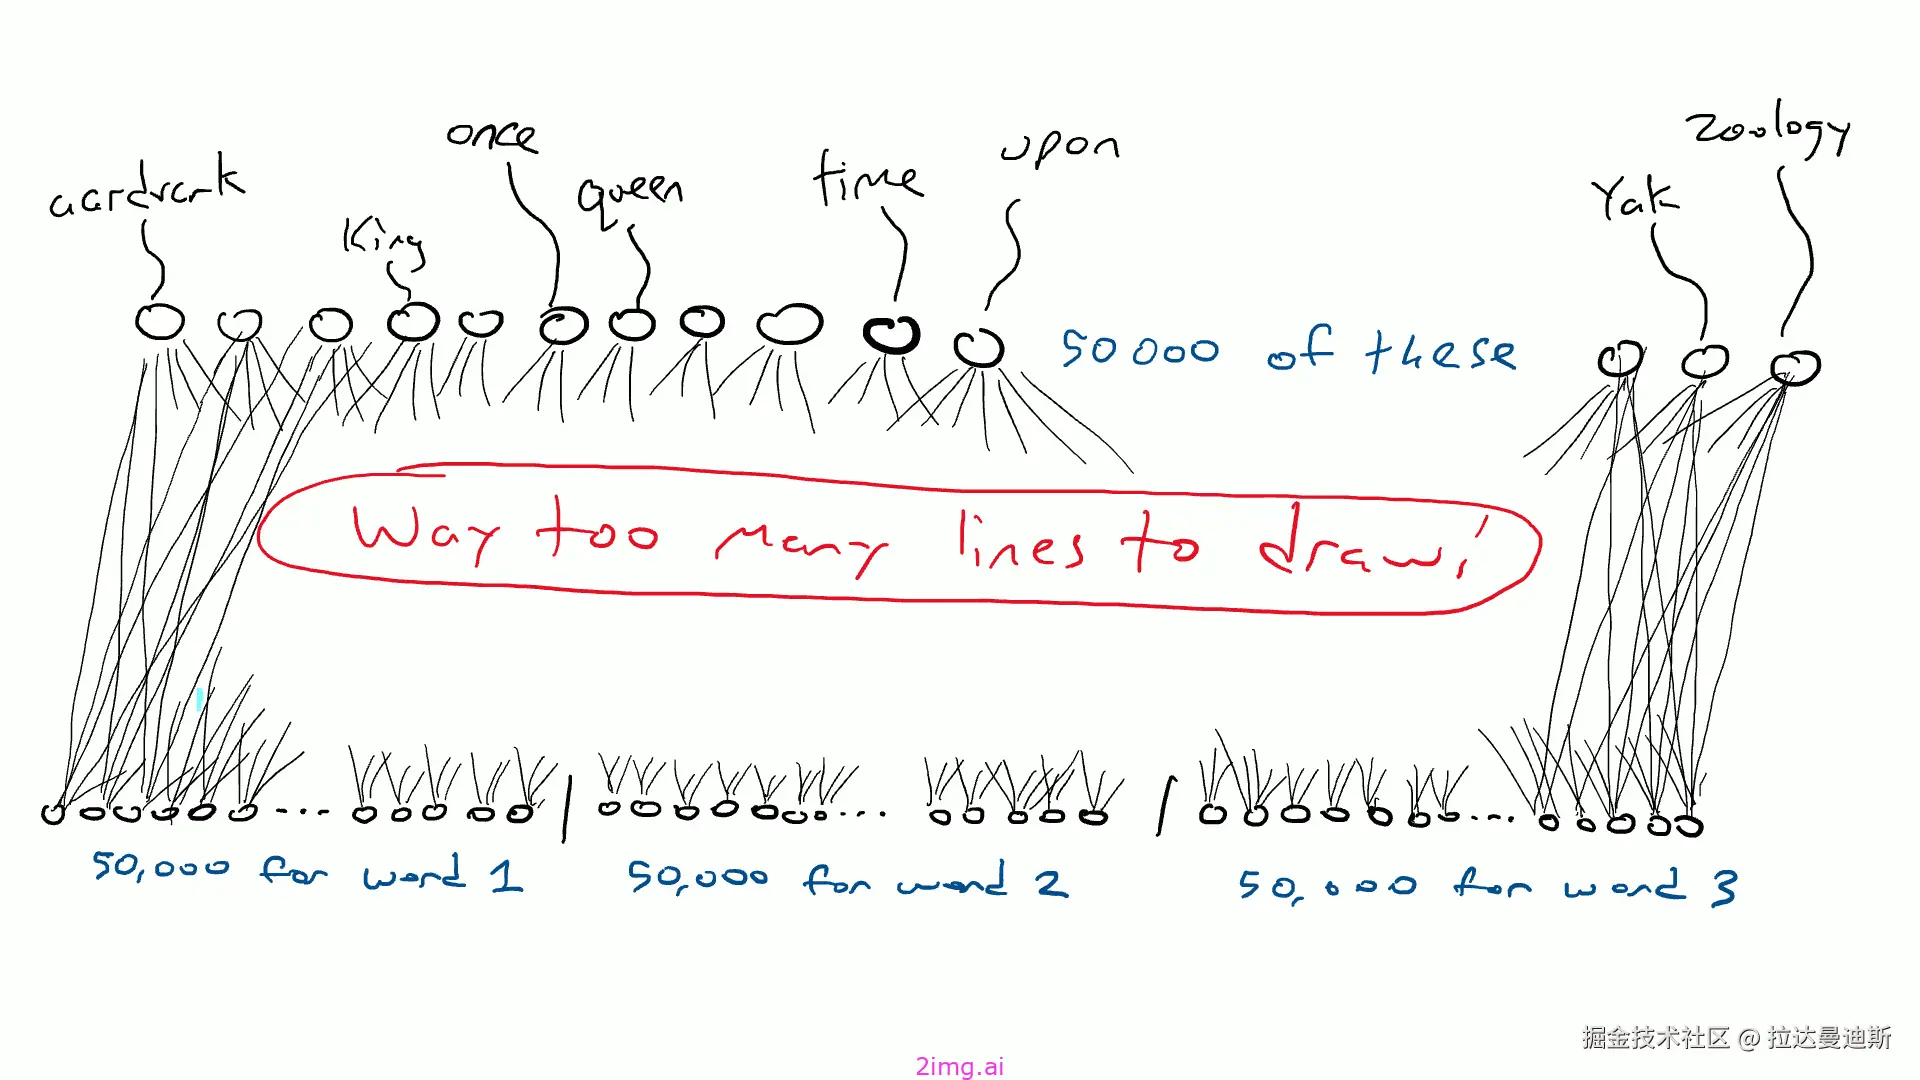 aardvark
King
once
queen
time
upon
Yak
zoology
50000 of these
Way too many lines to draw!
50,000 for word 1
50,000 for word 2
50,000 for word 3
掘金技术社区 @ 拉达曼迪斯
2img.ai